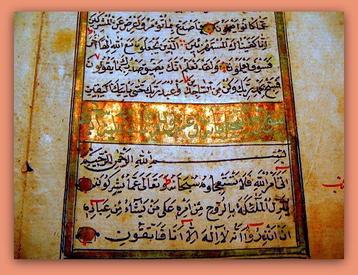 عما كانوا يعملون فاصدع بما تؤمر واعرض عن المشركين
انا كفيناك المستهزئين الذين يجعلون مع الله الها اخر
فسوف يعلمون ولقد نعلم انك يضيق صدرك بما يقولون
فسبح بحمد ربك وكن من الساجدين واعبد ربك حتى ياتيك اليقين
بسم الله الرحمن الرحيم
اتى امر الله فلا تستعجلوه سبحانه وتعالى عما يشركون
ينزل الملئكة بالروح من امره على من يشاء من عباده
ان انذروا انه لا اله الا انا فاتقون